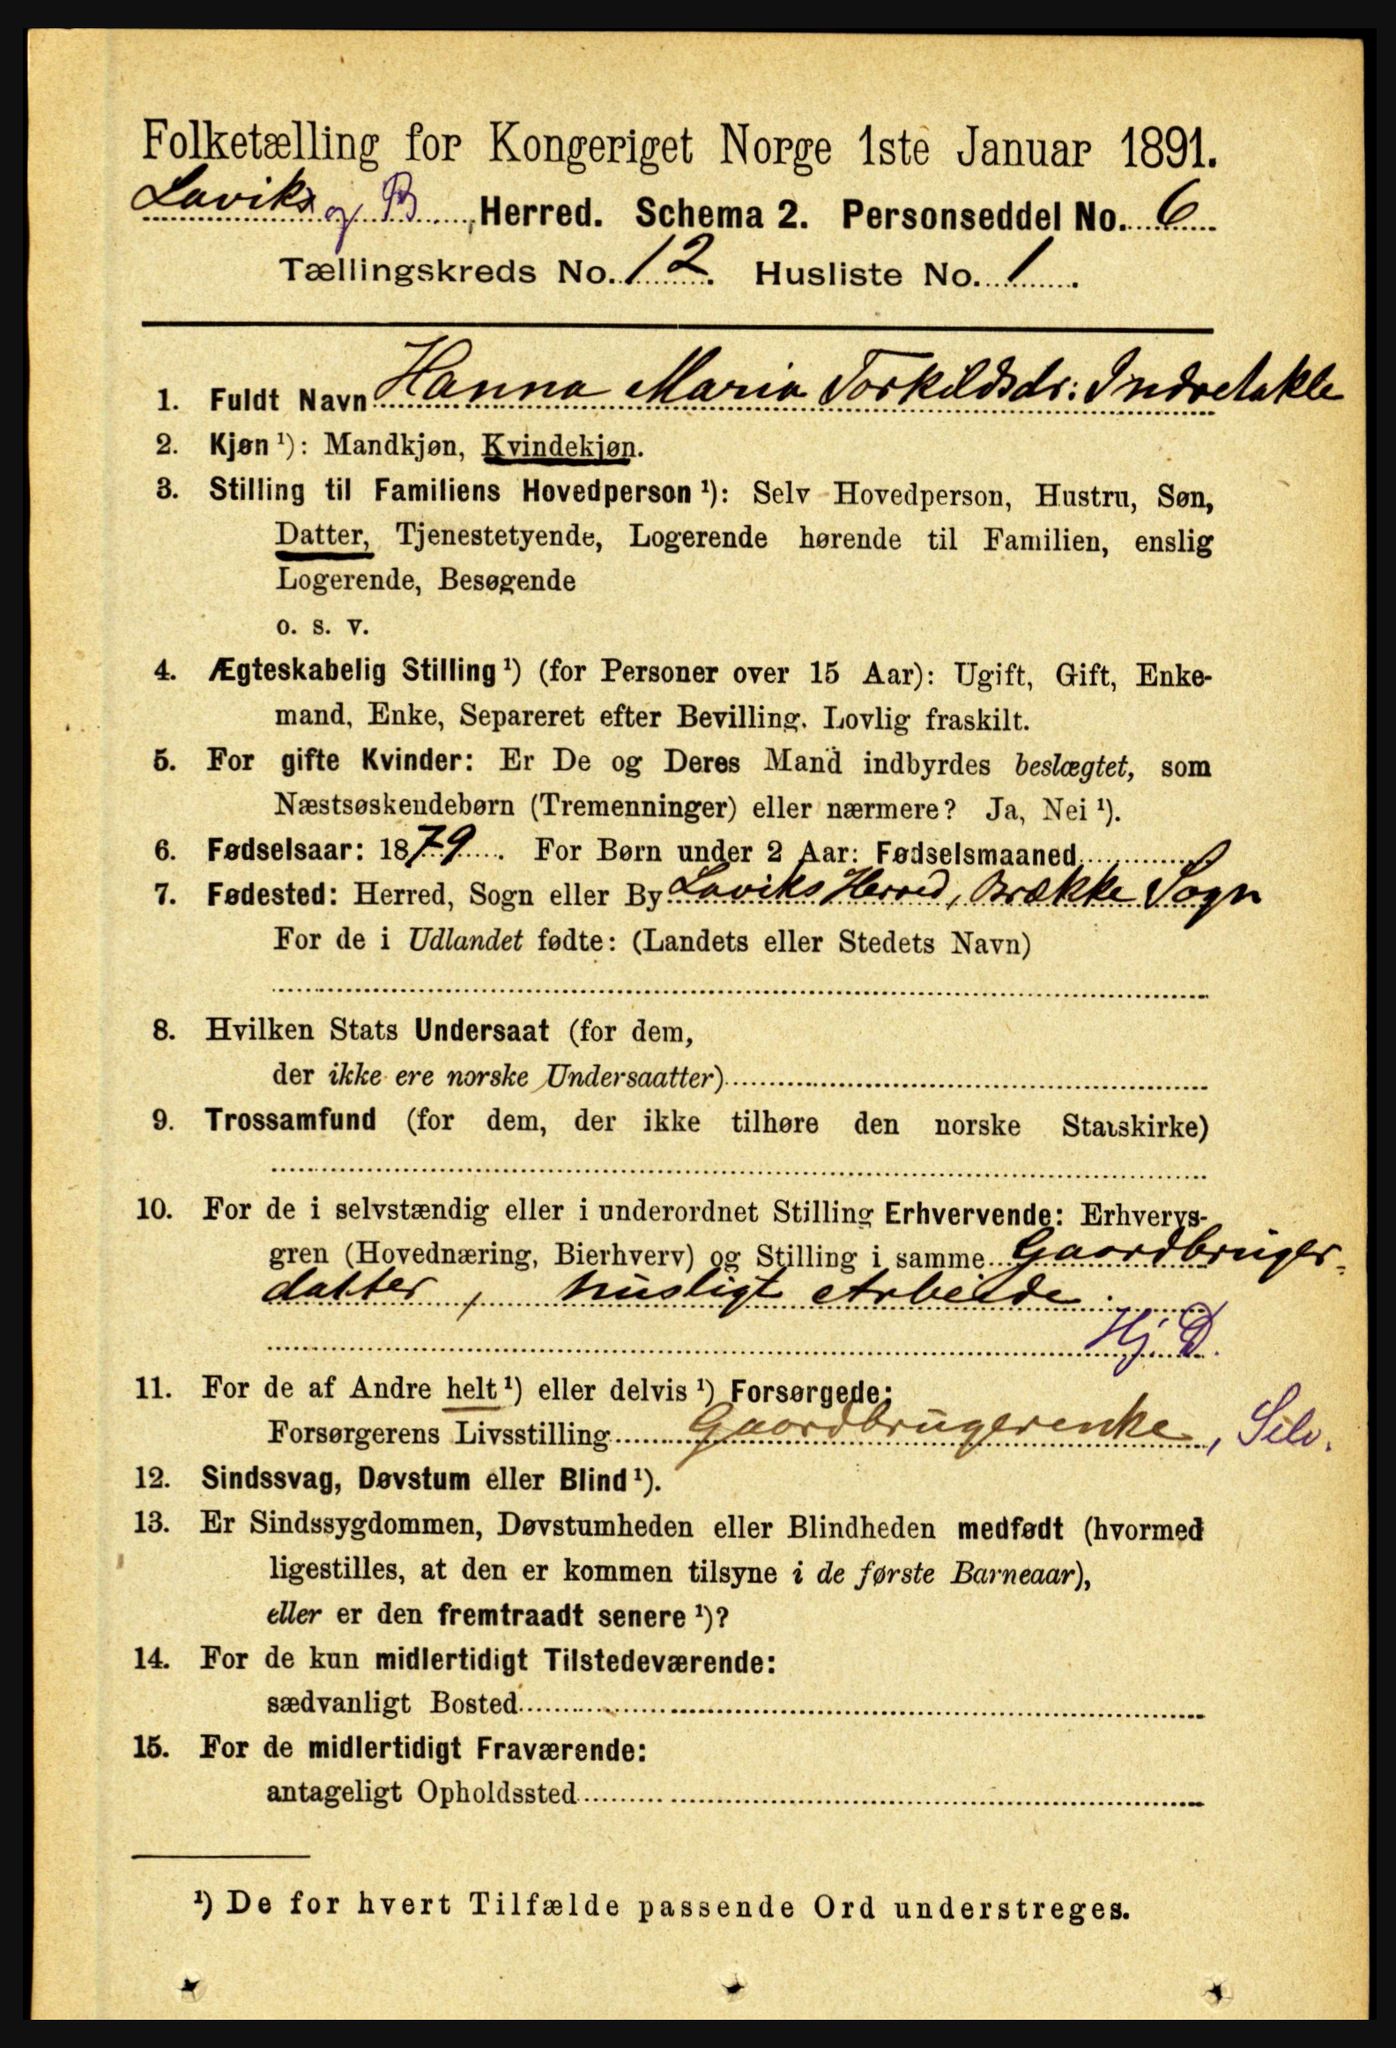 Folketælling for Kongeriget Norge 1ste Januar 1891.
Laviks og B., Herred. Schema 2. Personseddel No. 6
Tællingskreds No. 12. Husliste No. 1.
1. Fuldt Navn Hanna Maria Torkildsdr: Indretakle
2. Kjøn ¹): Mandkjøn, Kvindekjøn.
3. Stilling til Familiens Hovedperson ¹): Selv Hovedperson, Hustru, Søn,
Datter, Tjenestetyende, Logerende hørende til Familien, enslig
Logerende, Besøgende
o. s. v.
4. Ægteskabelig Stilling ¹) (for Personer over 15 Aar): Ugift, Gift, Enke-
mand, Enke, Separeret efter Bevilling. Lovlig fraskilt.
5. For gifte Kvinder: Er De og Deres Mand indbyrdes beslægtet, som
Næstsøskendebørn (Tremenninger) eller nærmere? Ja, Nei ¹).
6. Fødselsaar: 1879. For Børn under 2 Aar: Fødselsmaaned
7. Fødested: Herred, Sogn eller By Laviks Herred, Brække Sogn
For de i Udlandet fødte: (Landets eller Stedets Navn)
8. Hvilken Stats Undersaat (for dem,
der ikke ere norske Undersaatter)
9. Trossamfund (for dem, der ikke tilhøre den norske Statskirke)
10. For de i selvstændig eller i underordnet Stilling Erhvervende: Erhvervs-
gren (Hovednæring, Bierhverv) og Stilling i samme Gaardbruger-
datter, husligt Arbeide.
Hj. D.
11. For de af Andre helt ¹) eller delvis ¹) Forsørgede:
Forsørgerens Livsstilling Gaardbrugerenke, Selv.
12. Sindssvag, Døvstum eller Blind ¹).
13. Er Sindssygdommen, Døvstumheden eller Blindheden medfødt (hvormed
ligestilles, at den er kommen tilsyne i de første Barneaar),
eller er den fremtraadt senere ¹)?
14. For de kun midlertidigt Tilstedeværende:
sædvanligt Bosted
15. For de midlertidigt Fraværende:
antageligt Opholdssted
¹) De for hvert Tilfælde passende Ord understreges.